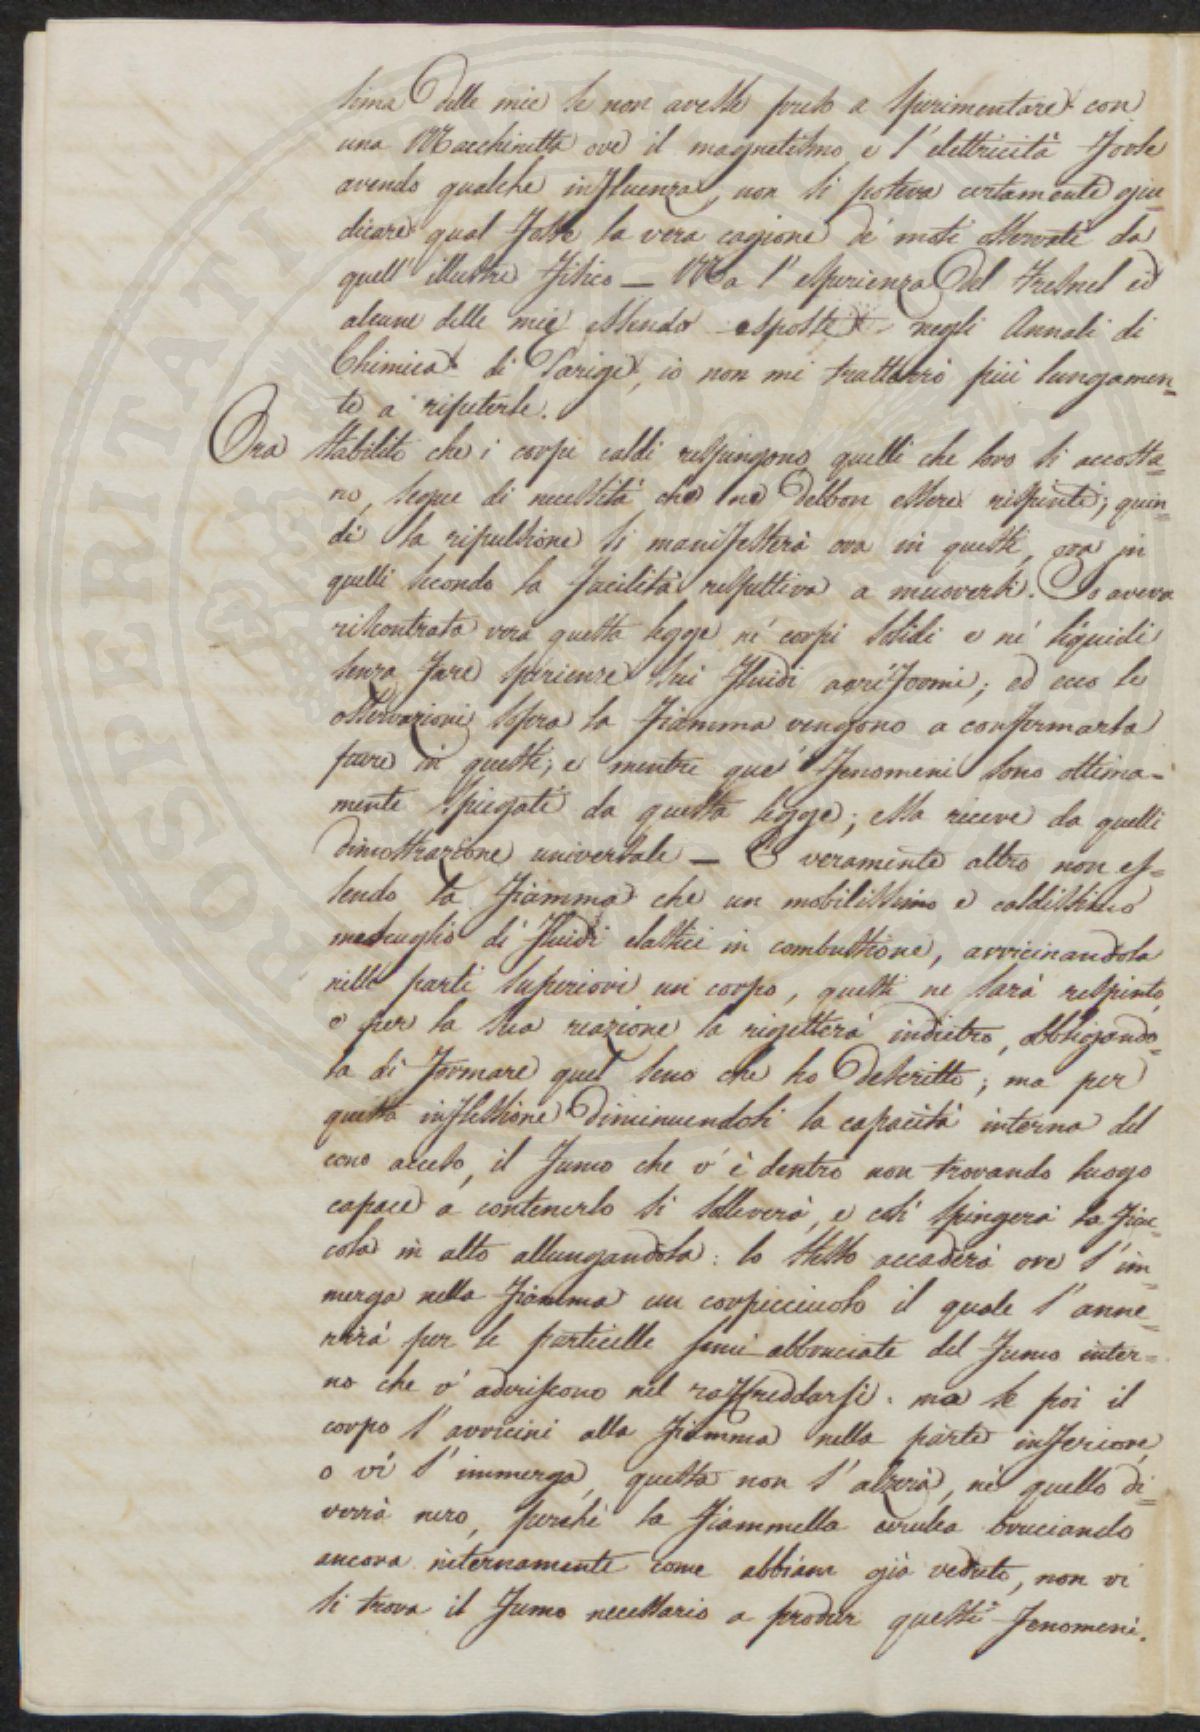 sima delle mie se non avesse preso a sperimentare con
una Macchinetta ove il magnetismo e l'elettricità forse
avendo qualche influenza, non si poteva certamente giu=
dicare qual fosse la vera cagione de' moti osservati da
quell'illustre fisico — Ma l'esperienza del Fresnel ed
alcune delle mie essendo esposte negli Annali di
Chimica di Parigi, io non mi tratterrò più lungamen=
te a ripeterle.
Ora stabilito che i corpi caldi respingono quelli che loro si accosta=
no, segue di necessità che ne debbon essere respinti; quin=
di la ripulsione si manifesterà ora in questi, ora in
quelli secondo la facilità respettiva a muoversi. Io aveva
riscontrata vera questa legge ne' corpi solidi e ne' liquidi
senza fare sperienze sui fluidi aeriformi; ed ecco le
osservazioni sopra la fiamma vengono a confermarla
pure in questi; e mentre que' fenomeni sono ottima=
mente spiegati da questa legge; essa riceve da quelli
dimostrazione universale — E veramente altro non es=
sendo la fiamma che un mobilissimo e caldissimo
mescuglio di fluidi elastici in combustione, avvicinandola
nelle parti superiori un corpo, questi ne sarà respinto,
e per la sua reazione la rigetterà indietro, obbligando=
la di formare quel seno che ho descritto; ma per
questa inflessione diminuendosi la capacità interna del
cono acceso, il fumo che v'è dentro non trovando luogo
capace a contenerlo si solleverà, e così spingerà la fiac=
cola in alto allungandola: lo stesso accaderà ove s'im=
merga nella fiamma un corpicciuolo il quale s'anne=
rirà per le particelle semiabbruciate del fumo inter=
no che v'aderiscono nel raffreddarsi. ma se poi il
corpo s'avvicini alla fiamma nella parte inferiore,
o vi s'immerga, questa non s'alzerà, nè quello di=
verrà nero, perchè la fiammella cerulea bruciando
ancora internamente come abbiam già veduto, non vi
si trova il fumo necessario a produr questi fenomeni.
PROSPERITATI